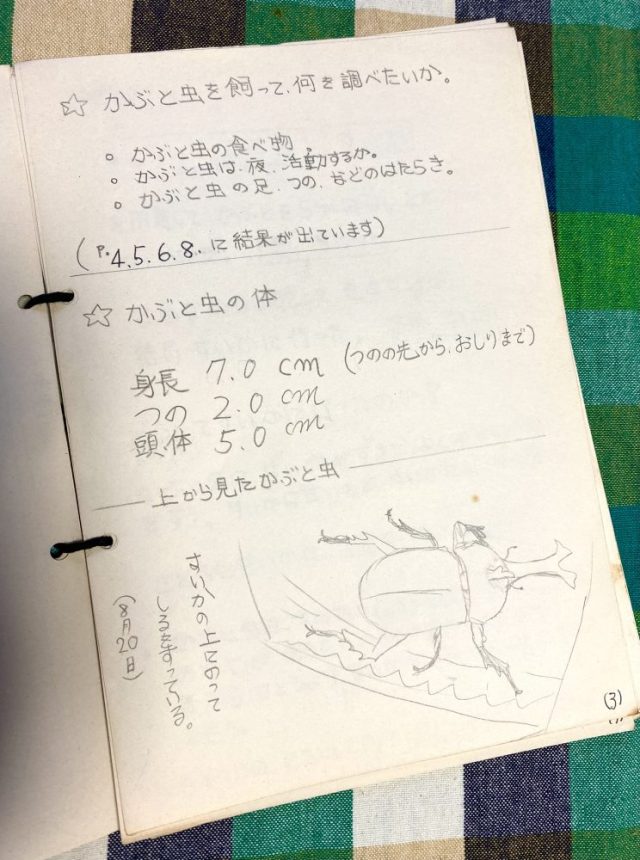 ☆ かぶと虫を飼って、何を調べたいか。
○ かぶと虫の食べ物
○ かぶと虫は、夜、活動するか。
○ かぶと虫の足、つの、などのはたらき。
(P.4.5.6.8.に結果が出ています)
☆ かぶと虫の体
身長 7.0 cm (つのの先から、おしりまで)
つの 2.0 cm
頭、体 5.0 cm
上から見たかぶと虫
すいかの上にのって
しるをすっている。
(8月20日)
(3)